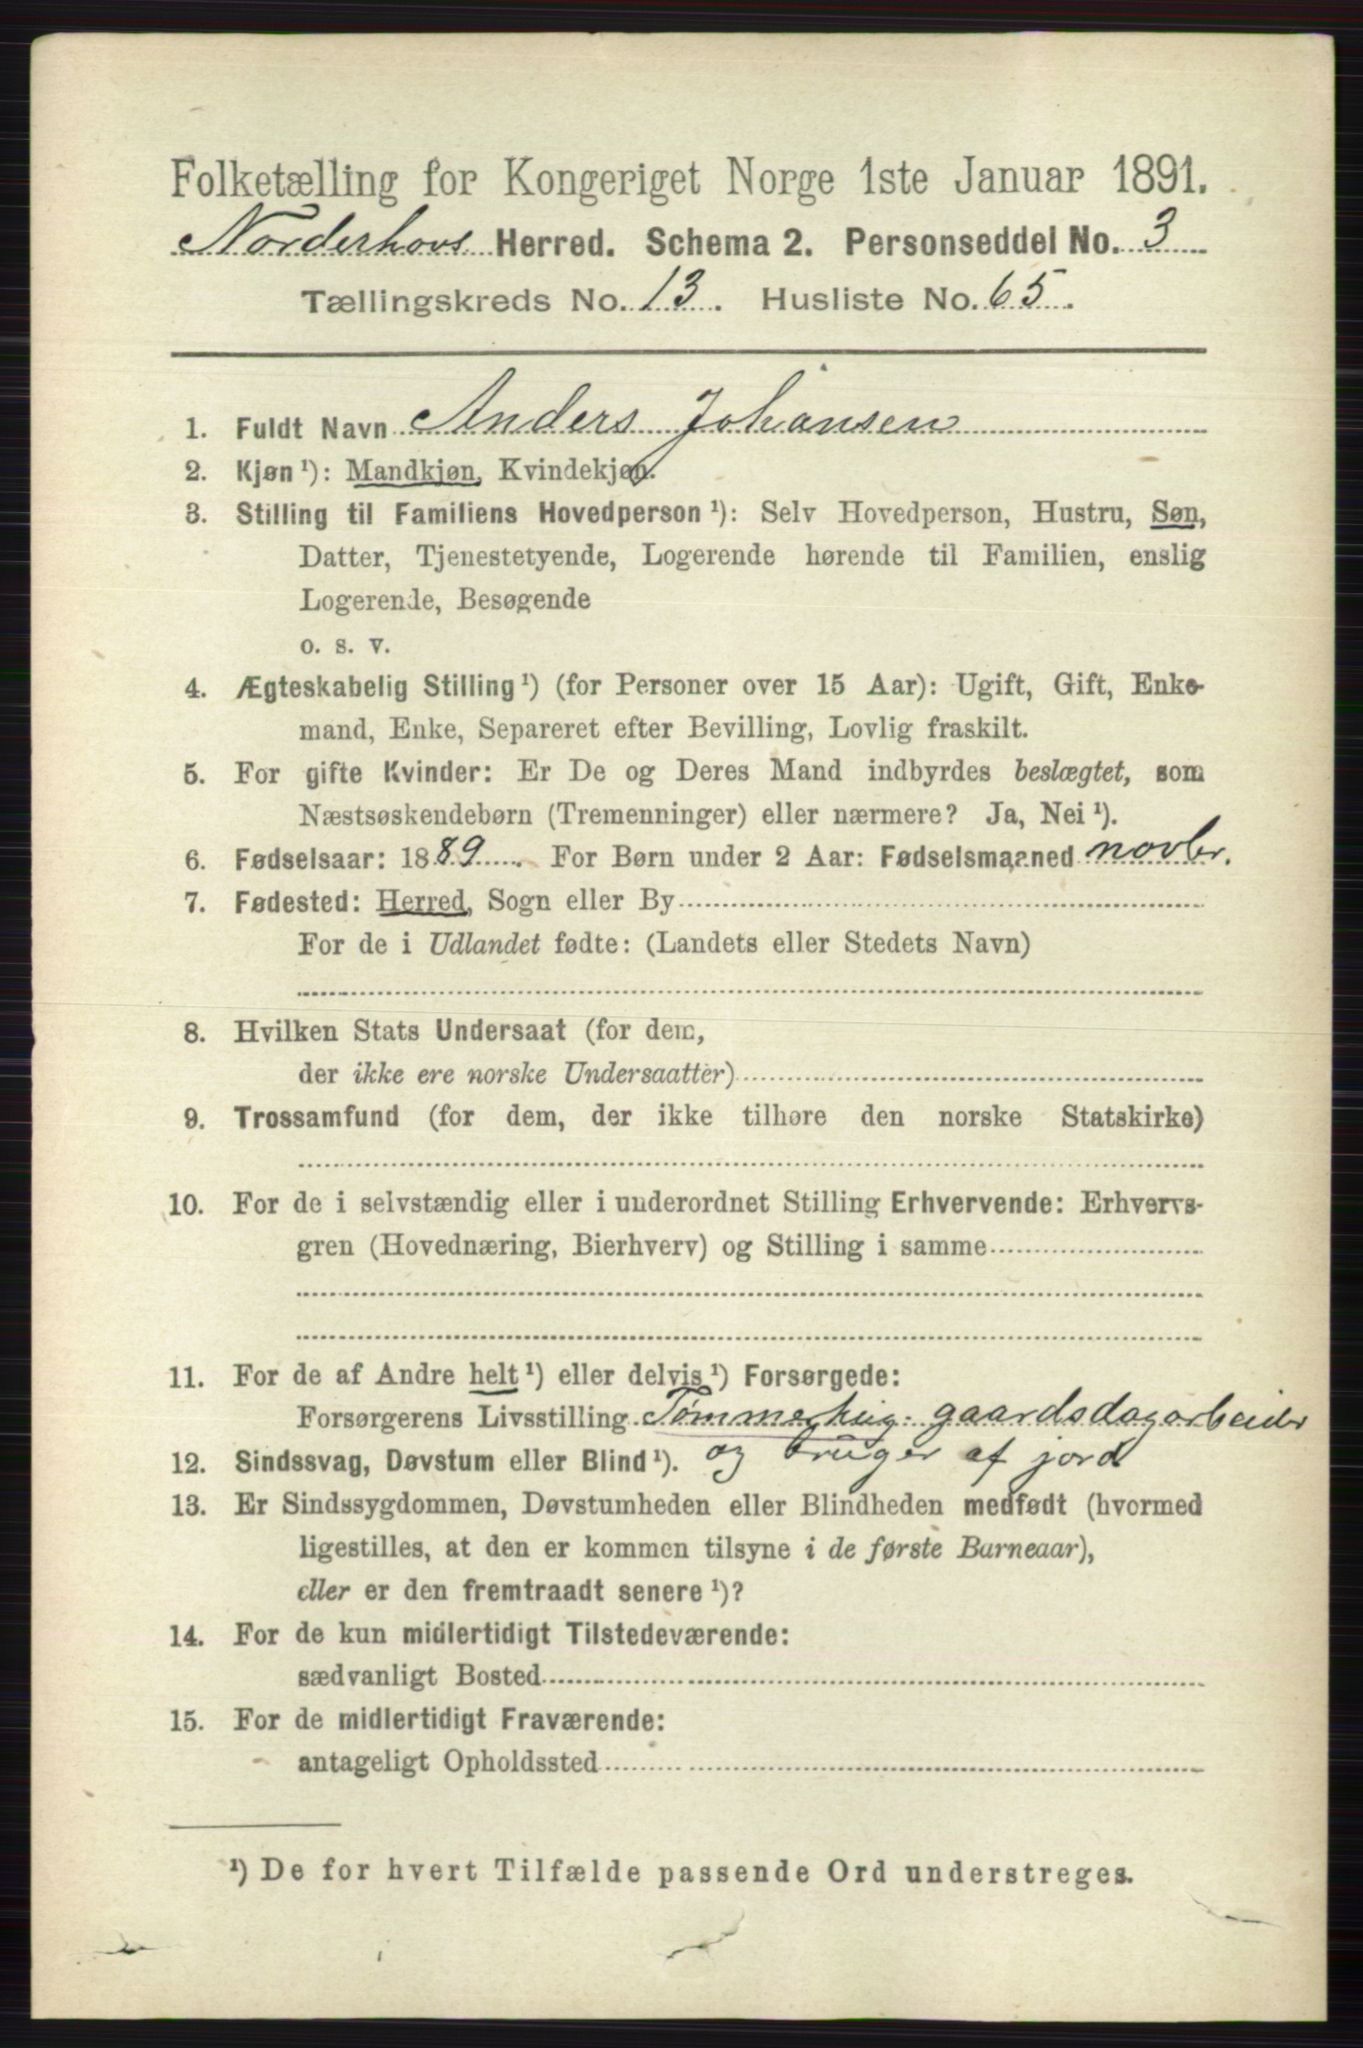 Folketælling for Kongeriget Norge 1ste Januar 1891.
Norderhovs Herred. Schema 2. Personseddel No. 3
Tællingskreds No. 13. Husliste No. 65.
1. Fuldt Navn Anders Johansen
2. Kjøn ¹): Mandkjøn, Kvindekjøn.
3. Stilling til Familiens Hovedperson ¹): Selv Hovedperson, Hustru, Søn,
Datter, Tjenestetyende, Logerende hørende til Familien, enslig
Logerende, Besøgende
o. s. v.
4. Ægteskabelig Stilling ¹) (for Personer over 15 Aar): Ugift, Gift, Enke-
mand, Enke, Separeret efter Bevilling, Lovlig fraskilt.
5. For gifte Kvinder: Er De og Deres Mand indbyrdes beslægtet, som
Næstsøskendebørn (Tremenninger) eller nærmere? Ja, Nei ¹).
6. Fødselsaar: 1889. For Børn under 2 Aar: Fødselsmaaned novbr.
7. Fødested: Herred, Sogn eller By
For de i Udlandet fødte: (Landets eller Stedets Navn)
8. Hvilken Stats Undersaat (for dem,
der ikke ere norske Undersaatter)
9. Trossamfund (for dem, der ikke tilhøre den norske Statskirke)
10. For de i selvstændig eller i underordnet Stilling Erhvervende: Erhvervs-
gren (Hovednæring, Bierhverv) og Stilling i samme
11. For de af Andre helt ¹) eller delvis ¹) Forsørgede:
Forsørgerens Livsstilling Tømmerhug. gaardsdagarbeider
12. Sindssvag, Døvstum eller Blind ¹). og bruger af jord
13. Er Sindssygdommen, Døvstumheden eller Blindheden medfødt (hvormed
ligestilles, at den er kommen tilsyne i de første Barneaar),
eller er den fremtraadt senere ¹)?
14. For de kun midlertidigt Tilstedeværende:
sædvanligt Bosted
15. For de midlertidigt Fraværende:
antageligt Opholdssted
¹) De for hvert Tilfælde passende Ord understreges.